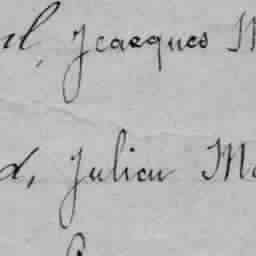 l, Jcacques M
d, Julien Ma